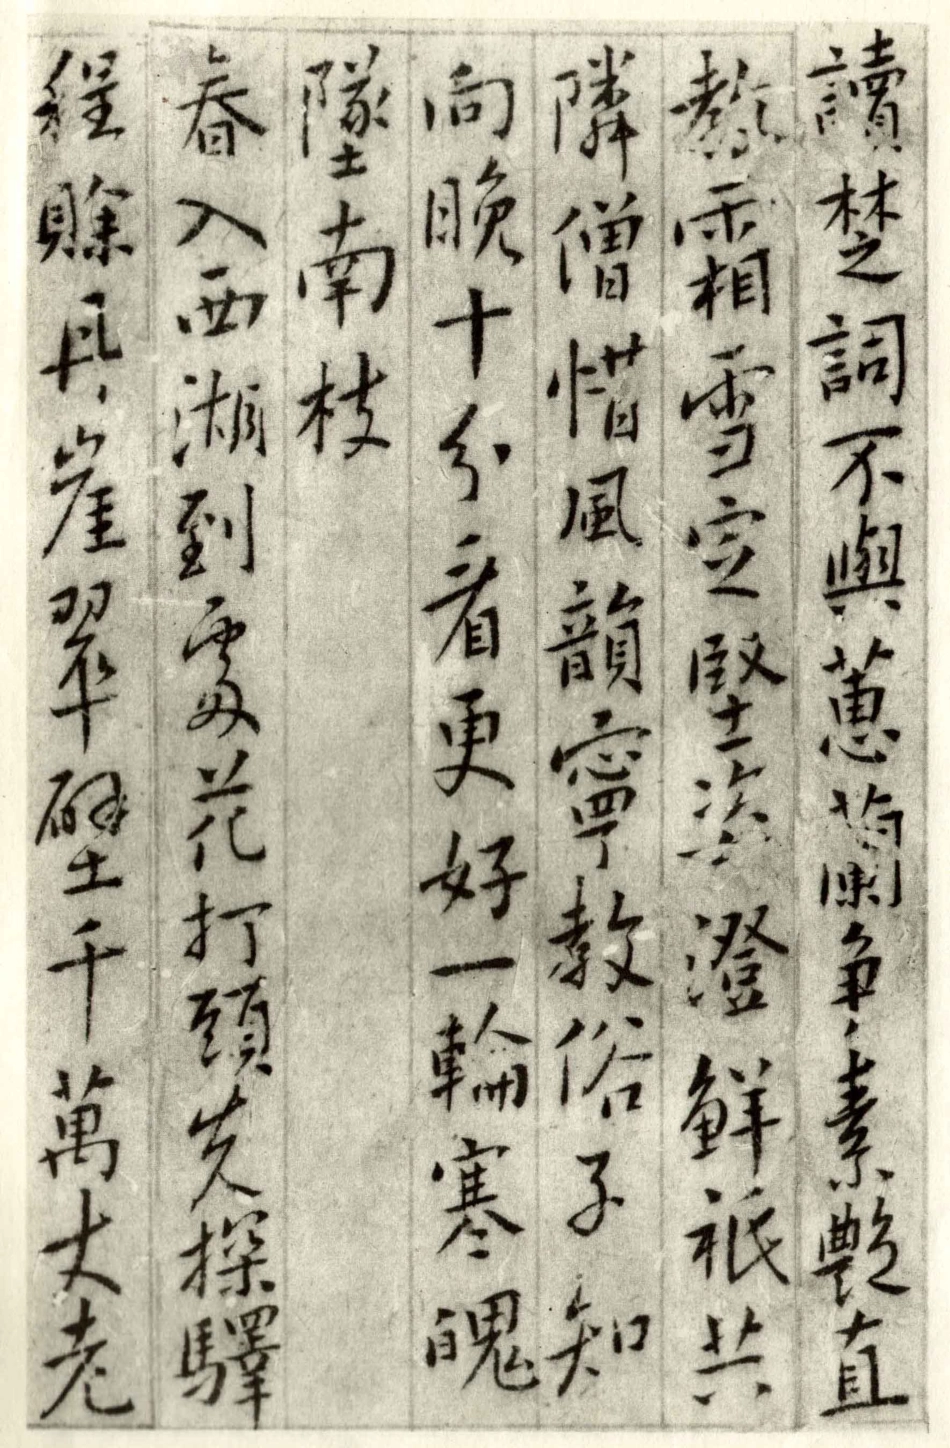 讀楚詞不與蕙蘭争素艷直
教霜雪定堅姿澄鮮祇共
隣僧惜風韻寧教俗子知
向晚十分看更好一輪寒魄
墜南枝
春入西湖到處花打頭先探驛
程賖具崖翠壁千萬丈老